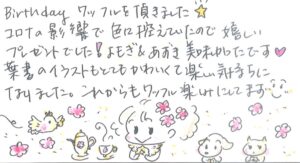 Birthday ワッフルを頂きました☆
コロナの影響で色々控えていたので嬉しい
プレゼントでした!よもぎ&あずき美味しかったです♥
葉書のイラストもとてもかわいくて楽しい気持ちに
なりました。これからもワッフル楽しみにしてます